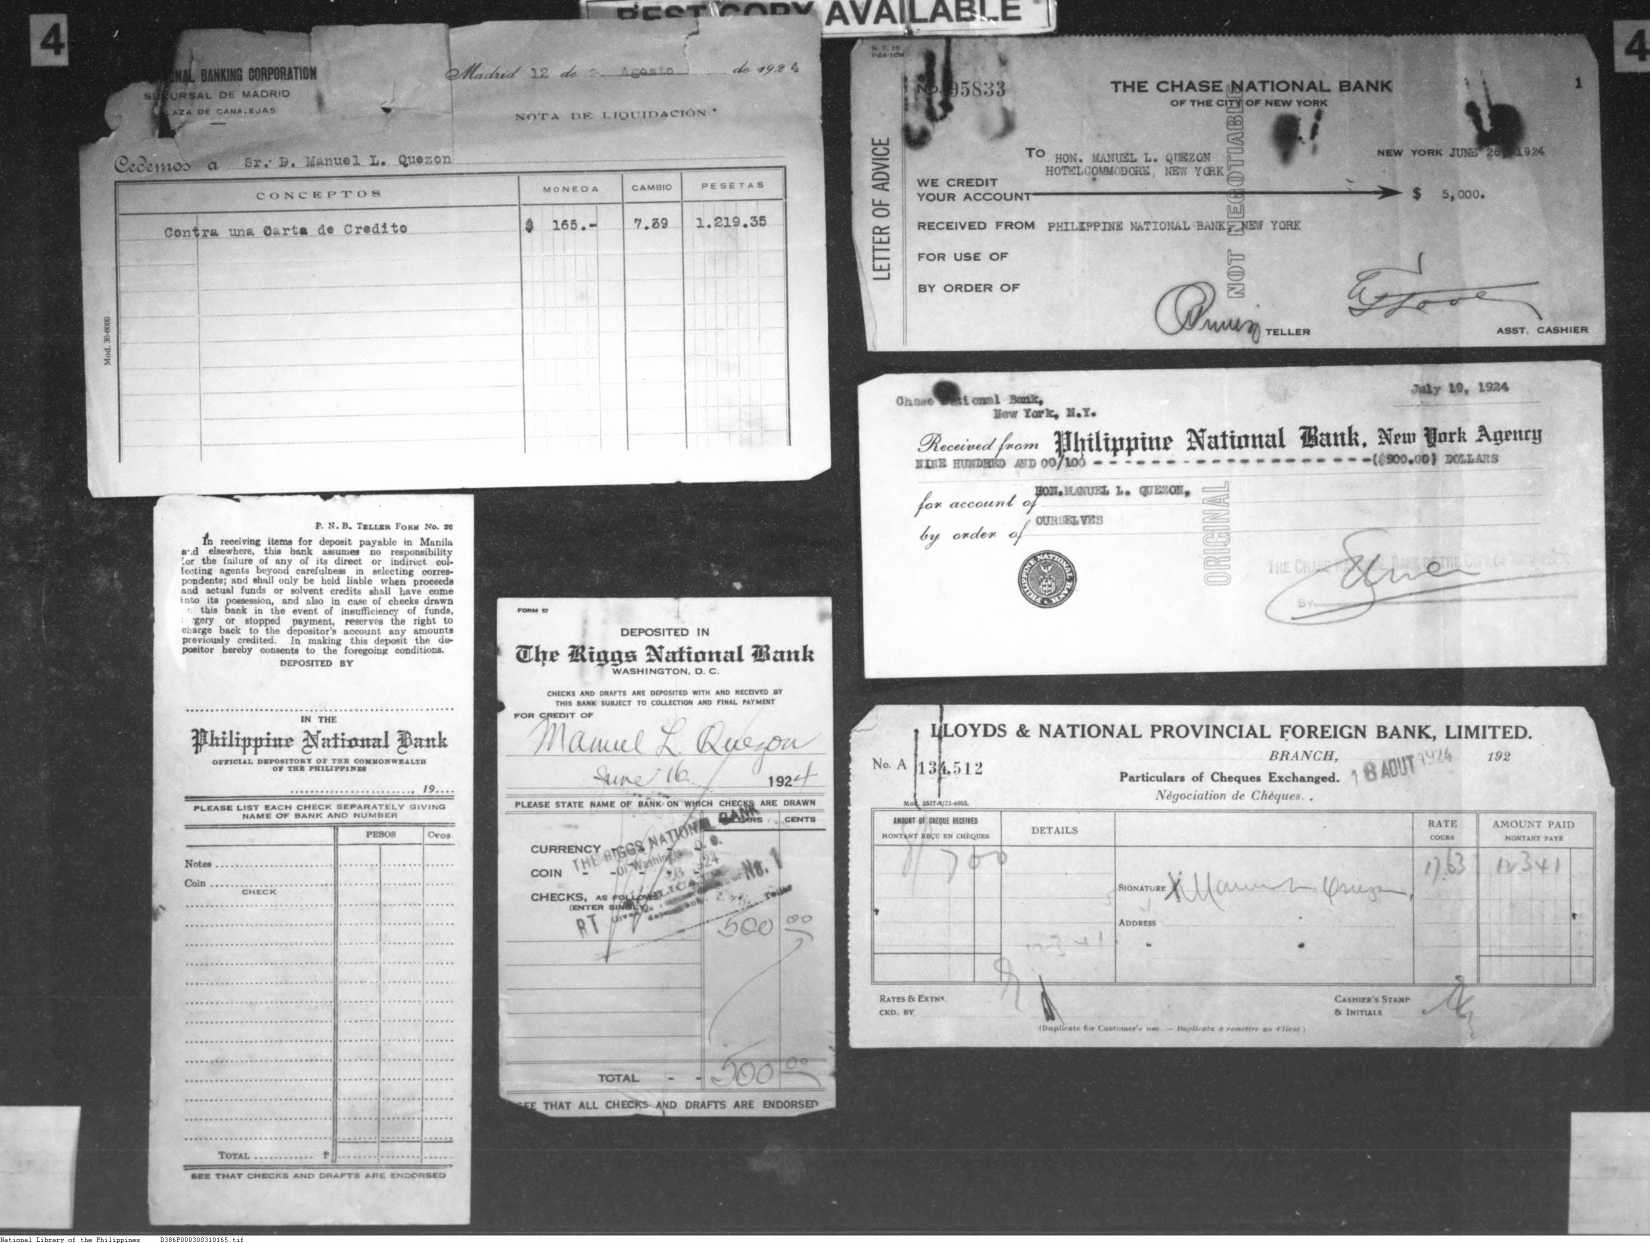 BEST COPY AVAILABLE
4
4
NAL BANKING CORPORATION
SUCURSAL DE MADRID
PLAZA DE CANALEJAS
Madrid 12 de Agosto de 1924
NOTA DE LIQUIDACIÓN
Cedemos a Sr. D. Manuel L. Quezon
CONCEPTOS MONEDA CAMBIO PESETAS
Contra una Carta de Credito $ 165.- 7.39 1.219.35
Mod. 30-6000
No. 95833
THE CHASE NATIONAL BANK
OF THE CITY OF NEW YORK
1
LETTER OF ADVICE
NOT NEGOTIABLE
TO HON. MANUEL L. QUEZON
HOTELCOMMODORE, NEW YORK
NEW YORK JUNE 26, 1924
WE CREDIT
YOUR ACCOUNT $ 5,000.
RECEIVED FROM PHILIPPINE NATIONAL BANK, NEW YORK
FOR USE OF
BY ORDER OF
TELLER
ASST. CASHIER
July 19, 1924
Chase National Bank,
New York, N.Y.
Received from Philippine National Bank, New York Agency
NINE HUNDRED AND 00/100 - - - - - - - - - - - - - - - - - -($900.00) DOLLARS
for account of HON. MANUEL L. QUEZON,
by order of OURSELVES
ORIGINAL
PHILIPPINE NATIONAL BANK
BY
P. N. B. TELLER FORM No. 26
In receiving items for deposit payable in Manila
and elsewhere, this bank assumes no responsibility
for the failure of any of its direct or indirect col-
lecting agents beyond carefulness in selecting corres-
pondents; and shall only be held liable when proceeds
and actual funds or solvent credits shall have come
into its possession, and also in case of checks drawn
this bank in the event of insufficiency of funds,
gery or stopped payment, reserves the right to
charge back to the depositor's account any amounts
previously credited. In making this deposit the de-
positor hereby consents to the foregoing conditions.
DEPOSITED BY
IN THE
Philippine National Bank
OFFICIAL DEPOSITORY OF THE COMMONWEALTH
OF THE PHILIPPINES
19....
PLEASE LIST EACH CHECK SEPARATELY GIVING
NAME OF BANK AND NUMBER
PESOS Cvos.
Notes
Coin
CHECK
TOTAL ₱
SEE THAT CHECKS AND DRAFTS ARE ENDORSED
FORM 57
DEPOSITED IN
The Riggs National Bank
WASHINGTON, D. C.
CHECKS AND DRAFTS ARE DEPOSITED WITH AND RECEIVED BY
THIS BANK SUBJECT TO COLLECTION AND FINAL PAYMENT
FOR CREDIT OF
Manuel L Quezon
June 16 1924
PLEASE STATE NAME OF BANK ON WHICH CHECKS ARE DRAWN
DOLLARS CENTS
CURRENCY
COIN
CHECKS, AS FOLLOWS
(ENTER SINGLY)
THE RIGGS NATIONAL BANK
Of Washington, D. C.
No. 1
Teller
RT
500 00
TOTAL - - 500 00
SEE THAT ALL CHECKS AND DRAFTS ARE ENDORSED
LLOYDS & NATIONAL PROVINCIAL FOREIGN BANK, LIMITED.
BRANCH, 192
No. A 134,512
Particulars of Cheques Exchanged.
18 AOUT 1924
Négociation de Chèques. .
AMOUNT OF CHEQUE RECEIVED
MONTANT REÇU EN CHÈQUES
DETAILS
RATE
COURS
AMOUNT PAID
MONTANT PAYÉ
700
17.63
12341
SIGNATURE X Manuel L Quezon
ADDRESS
12341
RATES & EXTNS.
CKD. BY
CASHIER'S STAMP
& INITIALS
(Duplicate for Customer's use. — Duplicata à remettre au Client)
National Library of the Philippines D386P000300310165.tif